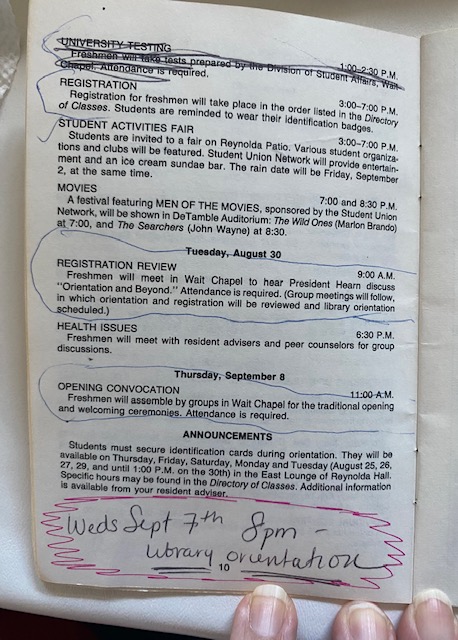 UNIVERSITY TESTING 1:00–2:30 P.M.
Freshmen will take tests prepared by the Division of Student Affairs, Wait
Chapel. Attendance is required.
REGISTRATION 3:00–7:00 P.M.
Registration for freshmen will take place in the order listed in the Directory
of Classes. Students are reminded to wear their identification badges.
STUDENT ACTIVITIES FAIR 3:00–7:00 P.M.
Students are invited to a fair on Reynolda Patio. Various student organiza-
tions and clubs will be featured. Student Union Network will provide entertain-
ment and an ice cream sundae bar. The rain date will be Friday, September
2, at the same time.
MOVIES 7:00 and 8:30 P.M.
A festival featuring MEN OF THE MOVIES, sponsored by the Student Union
Network, will be shown in DeTamble Auditorium: The Wild Ones (Marlon Brando)
at 7:00, and The Searchers (John Wayne) at 8:30.
Tuesday, August 30
REGISTRATION REVIEW 9:00 A.M.
Freshmen will meet in Wait Chapel to hear President Hearn discuss
"Orientation and Beyond." Attendance is required. (Group meetings will follow,
in which orientation and registration will be reviewed and library orientation
scheduled.)
HEALTH ISSUES 6:30 P.M.
Freshmen will meet with resident advisers and peer counselors for group
discussions.
Thursday, September 8
OPENING CONVOCATION 11:00 A.M.
Freshmen will assemble by groups in Wait Chapel for the traditional opening
and welcoming ceremonies. Attendance is required.
ANNOUNCEMENTS
Students must secure identification cards during orientation. They will be
available on Thursday, Friday, Saturday, Monday and Tuesday (August 25, 26,
27, 29, and until 1:00 P.M. on the 30th) in the East Lounge of Reynolda Hall.
Specific hours may be found in the Directory of Classes. Additional information
is available from your resident adviser.
Weds Sept 7th 8pm –
library orientation
10